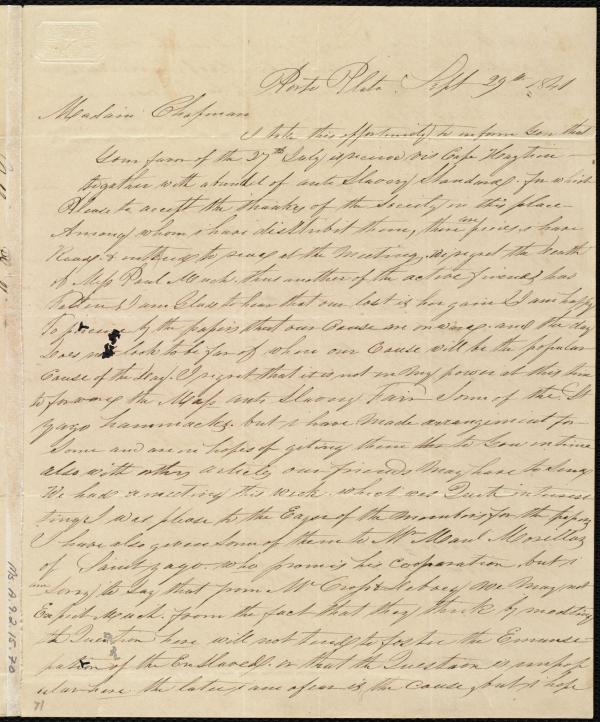 Porto Plata. Sept 29th 1841
Madam Chapman
I take this opportunity to inform you that
your favor of the 27th July is received via Cape Haytien
together with a bundel of anti Slavery Standard. for which
Please to accept the thanks of the Society in this place
Among whom I have distribit them, their are pieces I have
to read at the Meeting. We regret the death
of Miss Paul Much. thus another of the active friends has
fallen I am Glad to hear that our lost is her gain & I am happy
To by the papers that our Cause are on wing. and the day
does not look to be far of when our Cause will be the popular
Cause of the day. I regret that it is not in my power at this time
to forward the Mass anti Slavery Fair Some of the St
yago hammacks. but I have made arrangement for
Some and are in hopes of geting them to you in time
also with other articles our friends may have to send
We had a meeting this week. which was Quite interes
ting. I was please to the Eager of the members for the papers
I have also given some of them to Mr Manl
of Saint yago. who promis his cooperation but I
am Sorry to Say that from Mr We may not
Expect Much. from the fact that they think by
the Question here will not tend to foster the Emanci
pation of the Enslaved. or that the Question is unpop
ular here. the later I am of is the cause, but I hope
Ms. A.9.2.15.70
71